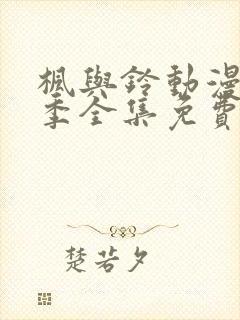 楓與鈴動漫
季全集免費
楚若夕